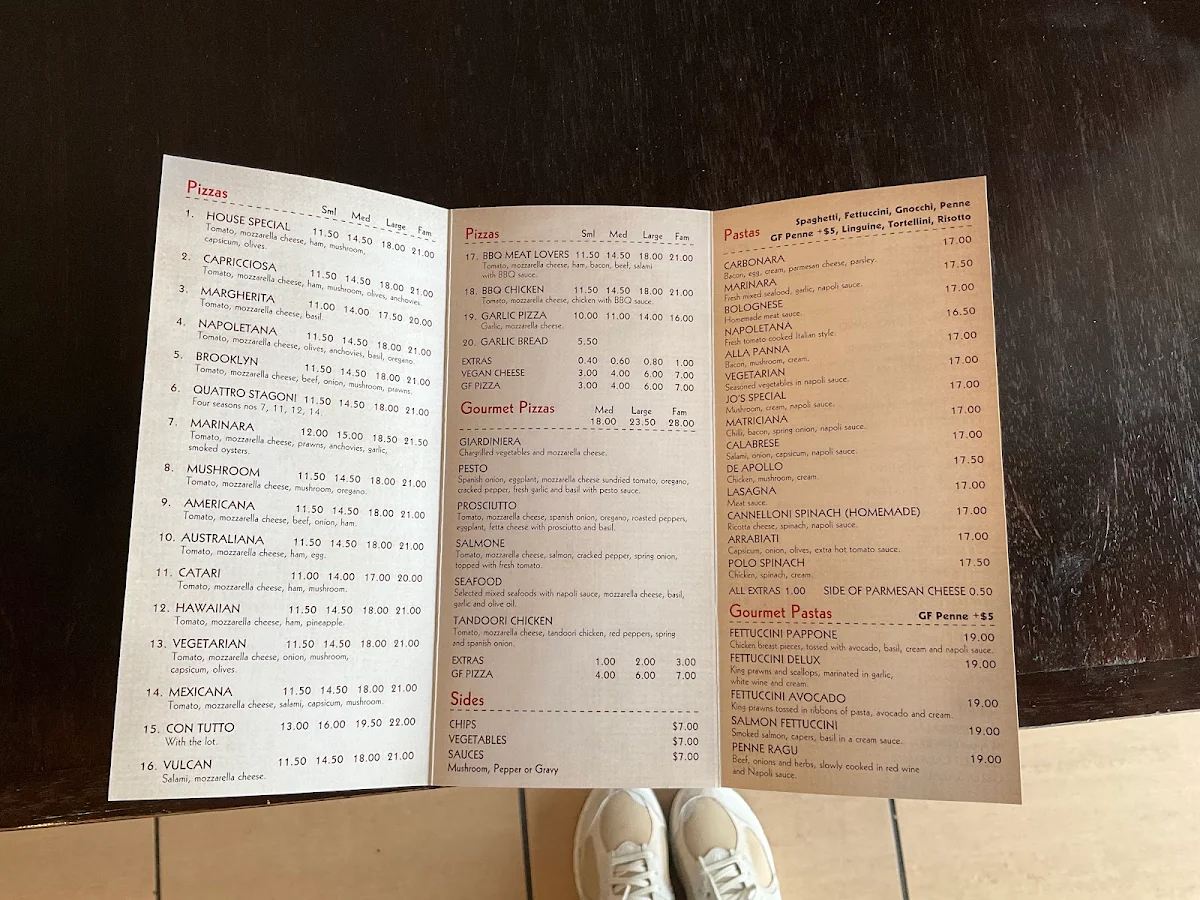 Pizzas
Sml Med Large Fam
1. HOUSE SPECIAL 11.50 14.50 18.00 21.00
Tomato, mozzarella cheese, ham, mushroom,
capsicum, olives.
2. CAPRICCIOSA 11.50 14.50 18.00 21.00
Tomato, mozzarella cheese, ham, mushroom, olives, anchovies.
3. MARGHERITA 11.00 14.00 17.50 20.00
Tomato, mozzarella cheese, basil.
4. NAPOLETANA 11.50 14.50 18.00 21.00
Tomato, mozzarella cheese, olives, anchovies, basil, oregano.
5. BROOKLYN 11.50 14.50 18.00 21.00
Tomato, mozzarella cheese, beef, onion, mushroom, prawns.
6. QUATTRO STAGONI 11.50 14.50 18.00 21.00
Four seasons nos 7, 11, 12, 14.
7. MARINARA 12.00 15.00 18.50 21.50
Tomato, mozzarella cheese, prawns, anchovies, garlic,
smoked oysters.
8. MUSHROOM 11.50 14.50 18.00 21.00
Tomato, mozzarella cheese, mushroom, oregano.
9. AMERICANA 11.50 14.50 18.00 21.00
Tomato, mozzarella cheese, beef, onion, ham.
10. AUSTRALIANA 11.50 14.50 18.00 21.00
Tomato, mozzarella cheese, ham, egg.
11. CATARI 11.00 14.00 17.00 20.00
Tomato, mozzarella cheese, ham, mushroom.
12. HAWAIIAN 11.50 14.50 18.00 21.00
Tomato, mozzarella cheese, ham, pineapple.
13. VEGETARIAN 11.50 14.50 18.00 21.00
Tomato, mozzarella cheese, onion, mushroom,
capsicum, olives.
14. MEXICANA 11.50 14.50 18.00 21.00
Tomato, mozzarella cheese, salami, capsicum, mushroom.
15. CON TUTTO 13.00 16.00 19.50 22.00
With the lot.
16. VULCAN 11.50 14.50 18.00 21.00
Salami, mozzarella cheese.
Pizzas Sml Med Large Fam
17. BBQ MEAT LOVERS 11.50 14.50 18.00 21.00
Tomato, mozzarella cheese, ham, bacon, beef, salami
with BBQ sauce.
18. BBQ CHICKEN 11.50 14.50 18.00 21.00
Tomato, mozzarella cheese, chicken with BBQ sauce.
19. GARLIC PIZZA 10.00 11.00 14.00 16.00
Garlic, mozzarella cheese.
20. GARLIC BREAD 5.50
EXTRAS 0.40 0.60 0.80 1.00
VEGAN CHEESE 3.00 4.00 6.00 7.00
GF PIZZA 3.00 4.00 6.00 7.00
Gourmet Pizzas Med Large Fam
18.00 23.50 28.00
GIARDINIERA
Chargrilled vegetables and mozzarella cheese.
PESTO
Spanish onion, eggplant, mozzarella cheese sundried tomato, oregano,
cracked pepper, fresh garlic and basil with pesto sauce.
PROSCIUTTO
Tomato, mozzarella cheese, spanish onion, oregano, roasted peppers,
eggplant, fetta cheese with prosciutto and basil.
SALMONE
Tomato, mozzarella cheese, salmon, cracked pepper, spring onion,
topped with fresh tomato.
SEAFOOD
Selected mixed seafoods with napoli sauce, mozzarella cheese, basil,
garlic and olive oil.
TANDOORI CHICKEN
Tomato, mozzarella cheese, tandoori chicken, red peppers, spring
and spanish onion.
EXTRAS 1.00 2.00 3.00
GF PIZZA 4.00 6.00 7.00
Sides
CHIPS $7.00
VEGETABLES $7.00
SAUCES $7.00
Mushroom, Pepper or Gravy
Pastas Spaghetti, Fettuccini, Gnocchi, Penne
GF Penne +$5, Linguine, Tortellini, Risotto
CARBONARA 17.00
Bacon, egg, cream, parmesan cheese, parsley.
MARINARA 17.50
Fresh mixed seafood, garlic, napoli sauce.
BOLOGNESE 17.00
Homemade meat sauce.
NAPOLETANA 16.50
Fresh tomato cooked Italian style.
ALLA PANNA 17.00
Bacon, mushroom, cream.
VEGETARIAN 17.00
Seasoned vegetables in napoli sauce.
JO'S SPECIAL 17.00
Mushroom, cream, napoli sauce.
MATRICIANA 17.00
Chilli, bacon, spring onion, napoli sauce.
CALABRESE 17.00
Salami, onion, capsicum, napoli sauce.
DE APOLLO 17.50
Chicken, mushroom, cream.
LASAGNA 17.00
Meat sauce.
CANNELLONI SPINACH (HOMEMADE) 17.00
Ricotta cheese, spinach, napoli sauce.
ARRABIATI 17.00
Capsicum, onion, olives, extra hot tomato sauce.
POLO SPINACH 17.50
Chicken, spinach, cream.
ALL EXTRAS 1.00 SIDE OF PARMESAN CHEESE 0.50
Gourmet Pastas GF Penne +$5
FETTUCCINI PAPPONE 19.00
Chicken breast pieces, tossed with avocado, basil, cream and napoli sauce.
FETTUCCINI DELUX 19.00
King prawns and scallops, marinated in garlic,
white wine and cream.
FETTUCCINI AVOCADO 19.00
King prawns tossed in ribbons of pasta, avocado and cream.
SALMON FETTUCCINI 19.00
Smoked salmon, capers, basil in a cream sauce.
PENNE RAGU 19.00
Beef, onions and herbs, slowly cooked in red wine
and Napoli sauce.